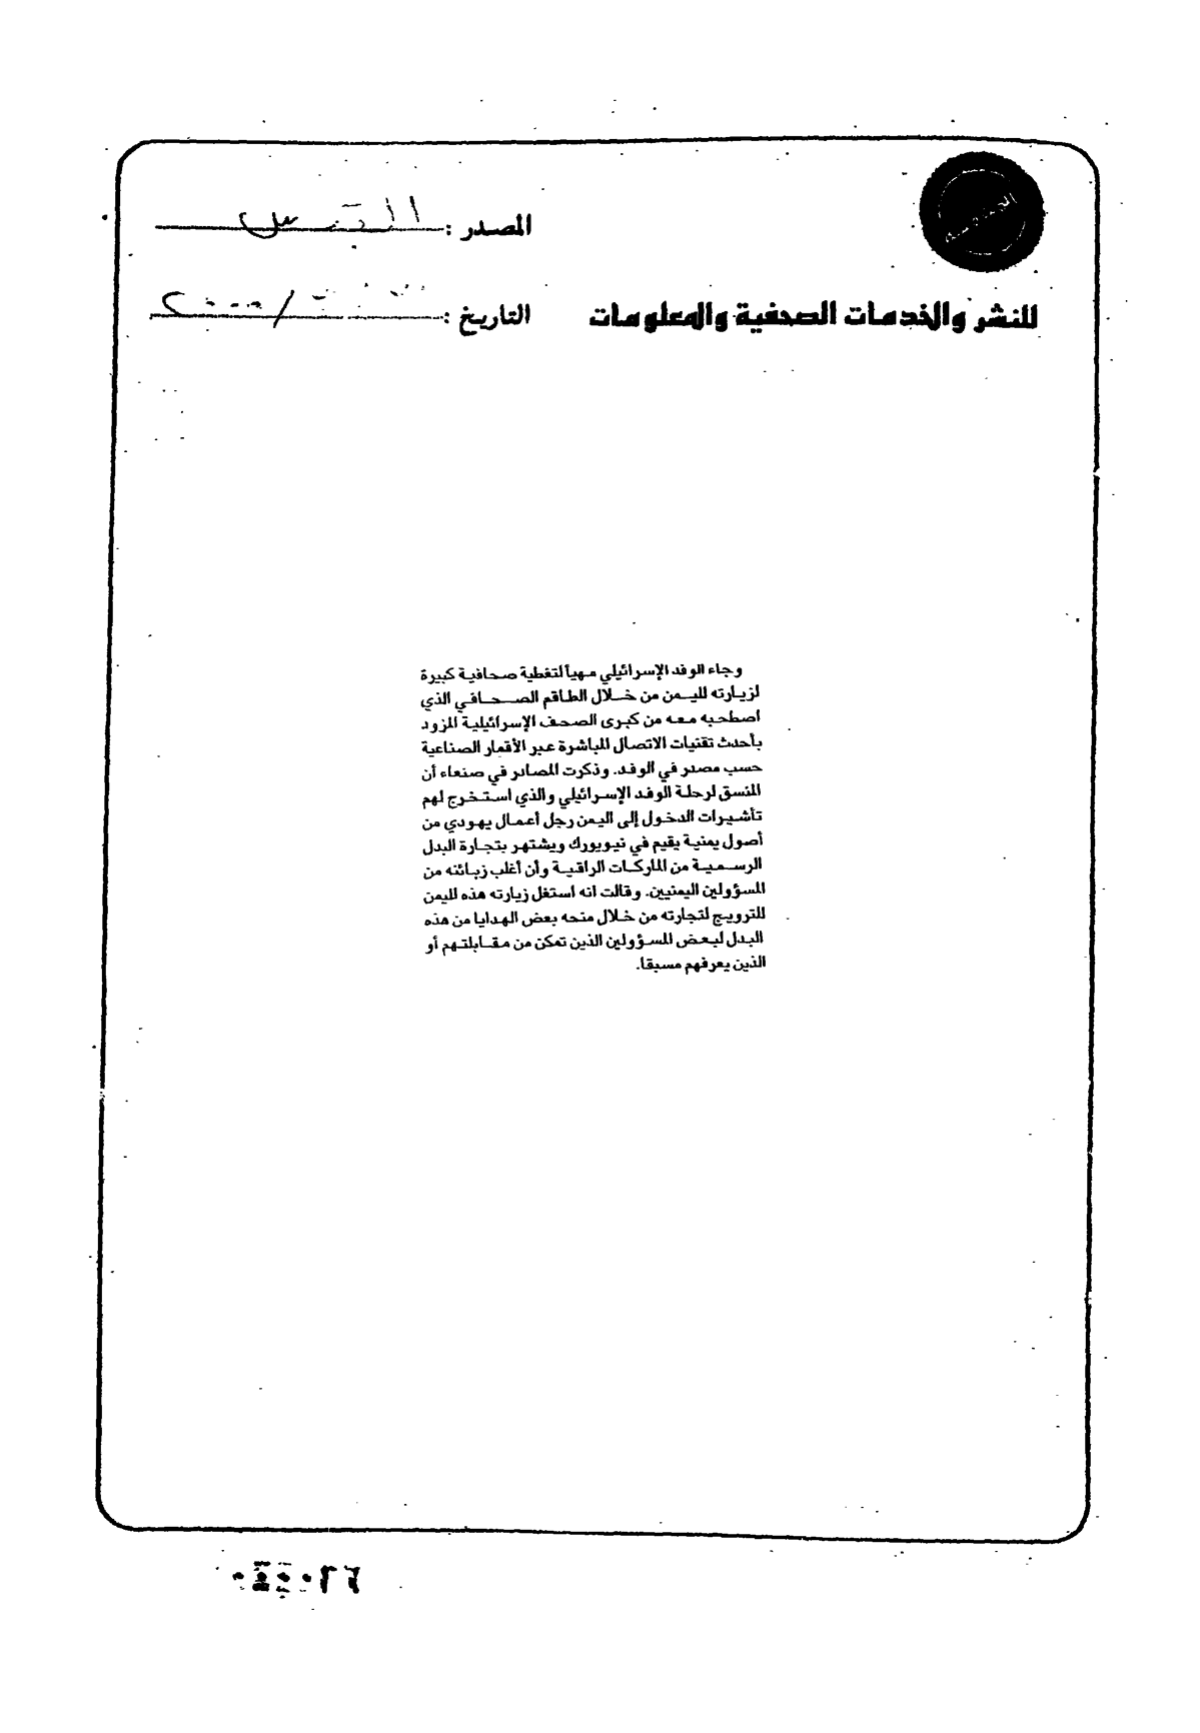 المصدر : القبس
للنشر والخدمات الصحفية والمعلومات
التاريخ : / ٢٠٠٠
وجاء الوفد الإسرائيلي مهيأ لتغطية صحافية كبيرة
لزيارته لليمن من خلال الطاقم الصحافي الذي
اصطحبه معه من كبرى الصحف الإسرائيلية المزود
بأحدث تقنيات الاتصال المباشرة عبر الأقمار الصناعية
حسب مصدر في الوفد. وذكرت المصادر في صنعاء أن
المنسق لرحلة الوفد الإسرائيلي والذي استخرج لهم
تأشيرات الدخول إلى اليمن رجل أعمال يهودي من
أصول يمنية يقيم في نيويورك ويشتهر بتجارة البدل
الرسمية من الماركات الراقية وأن أغلب زبائنه من
المسؤولين اليمنيين. وقالت انه استغل زيارته هذه لليمن
للترويج لتجارته من خلال منحه بعض الهدايا من هذه
البدل لبعض المسؤولين الذين تمكن من مقابلتهم أو
الذين يعرفهم مسبقا.